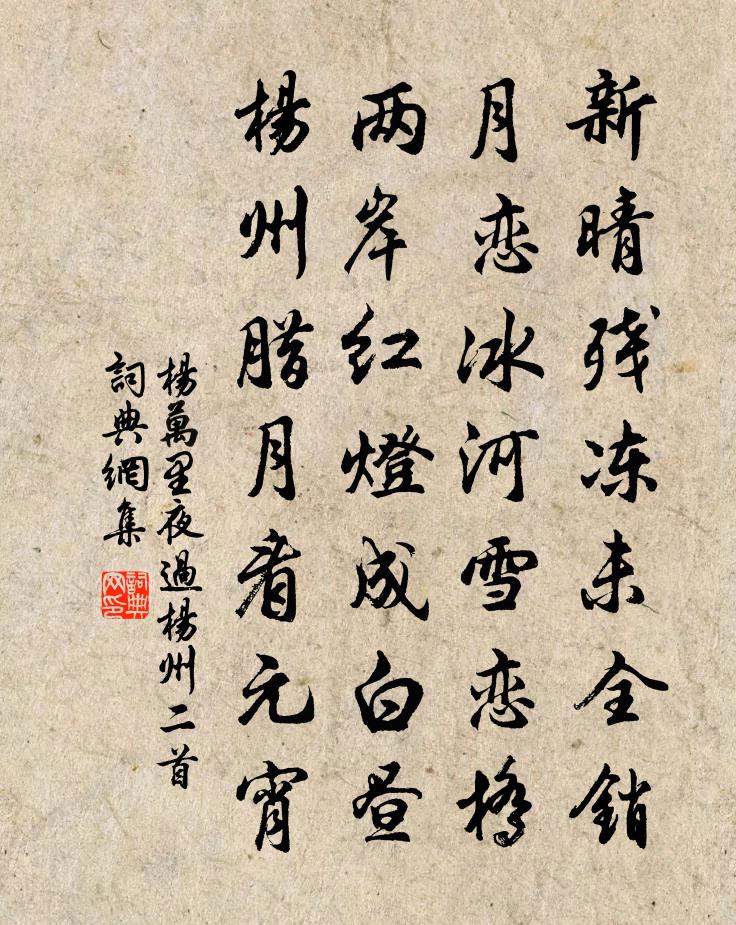 新晴残冻未全銷
月恋冰河雪恋橋
两岸红燈成白昼
楊州腊月看元宵
楊萬里夜過楊州二首
詞典網集
詞典网印